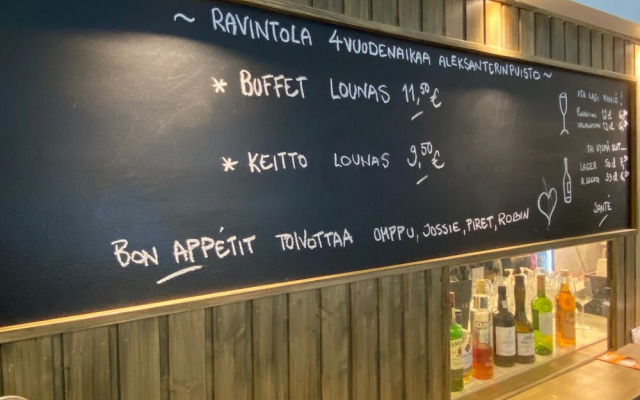 ~ RAVINTOLA 4VUODENAIKAA ALEKSANTERINPUISTO ~
* BUFFET LOUNAS 11,50 €
* KEITTO LOUNAS 9,50 €
BON APPÉTIT TOIVOTTAA OMPPU, JOSSIE, PIRET, ROBIN
OTA LASI VIINIÄ!
12 cl
12 cl
TAI KYLMÄ OLUT....
LAGER 50 cl
33 cl
SANTÉ